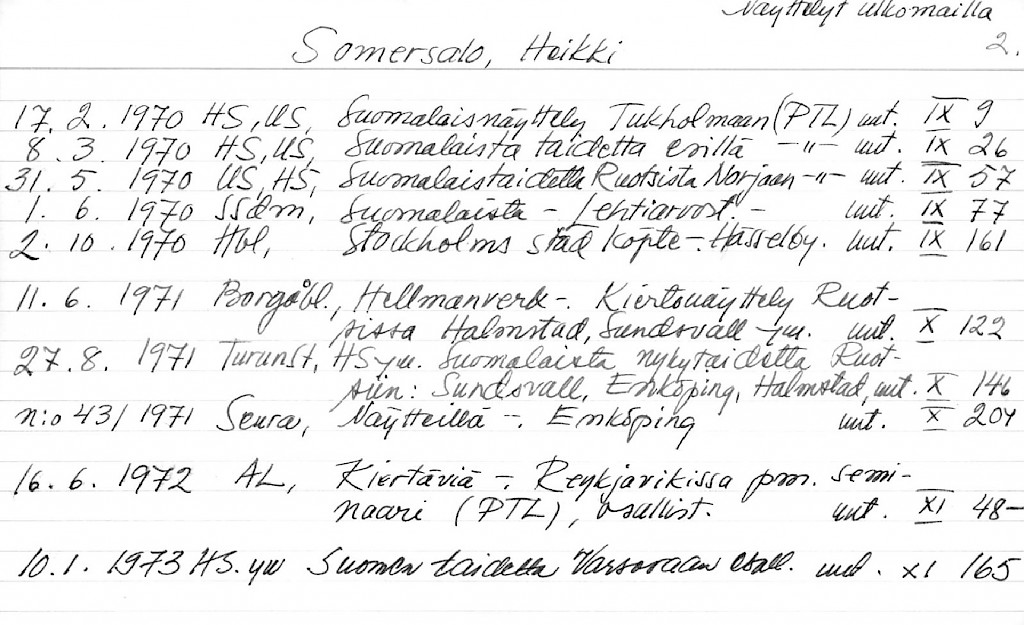 Näyttelyt ulkomailla
2.
Somersalo, Heikki
17. 2. 1970 HS, US, Suomalaisnäyttely Tukholmaan (PTL) uut. IX 9
8. 3. 1970 HS, US, Suomalaista taidetta esillä -"- uut. IX 26
31. 5. 1970 US, HS, Suomalaistaidetta Ruotsista Norjaan -"- uut. IX 57
1. 6. 1970 SSdm, Suomalaista - Lehtiarvost. - uut. IX 77
2. 10. 1970 Hbl, Stockholms stad köpte -. Hässelby. uut. IX 161
11. 6. 1971 Borgåbl., Hellmanverk -. Kiertonäyttely Ruot-
sissa Halmstad, Sundsvall ym. uut. X 122
27. 8. 1971 Turunst, HS ym. Suomalaista nykytaidetta Ruot-
siin: Sundsvall, Enköping, Halmstad, uut. X 146
n:o 43/1971 Seura, Näytteillä -. Enköping uut. X 204
16. 6. 1972 AL, Kiertäviä -. Reykjavikissa pm. semi-
naari (PTL), osallist. uut. XI 48-
10. 1. 1973 HS. ym Suomen taidetta Varsovaan osall. uut. XI 165